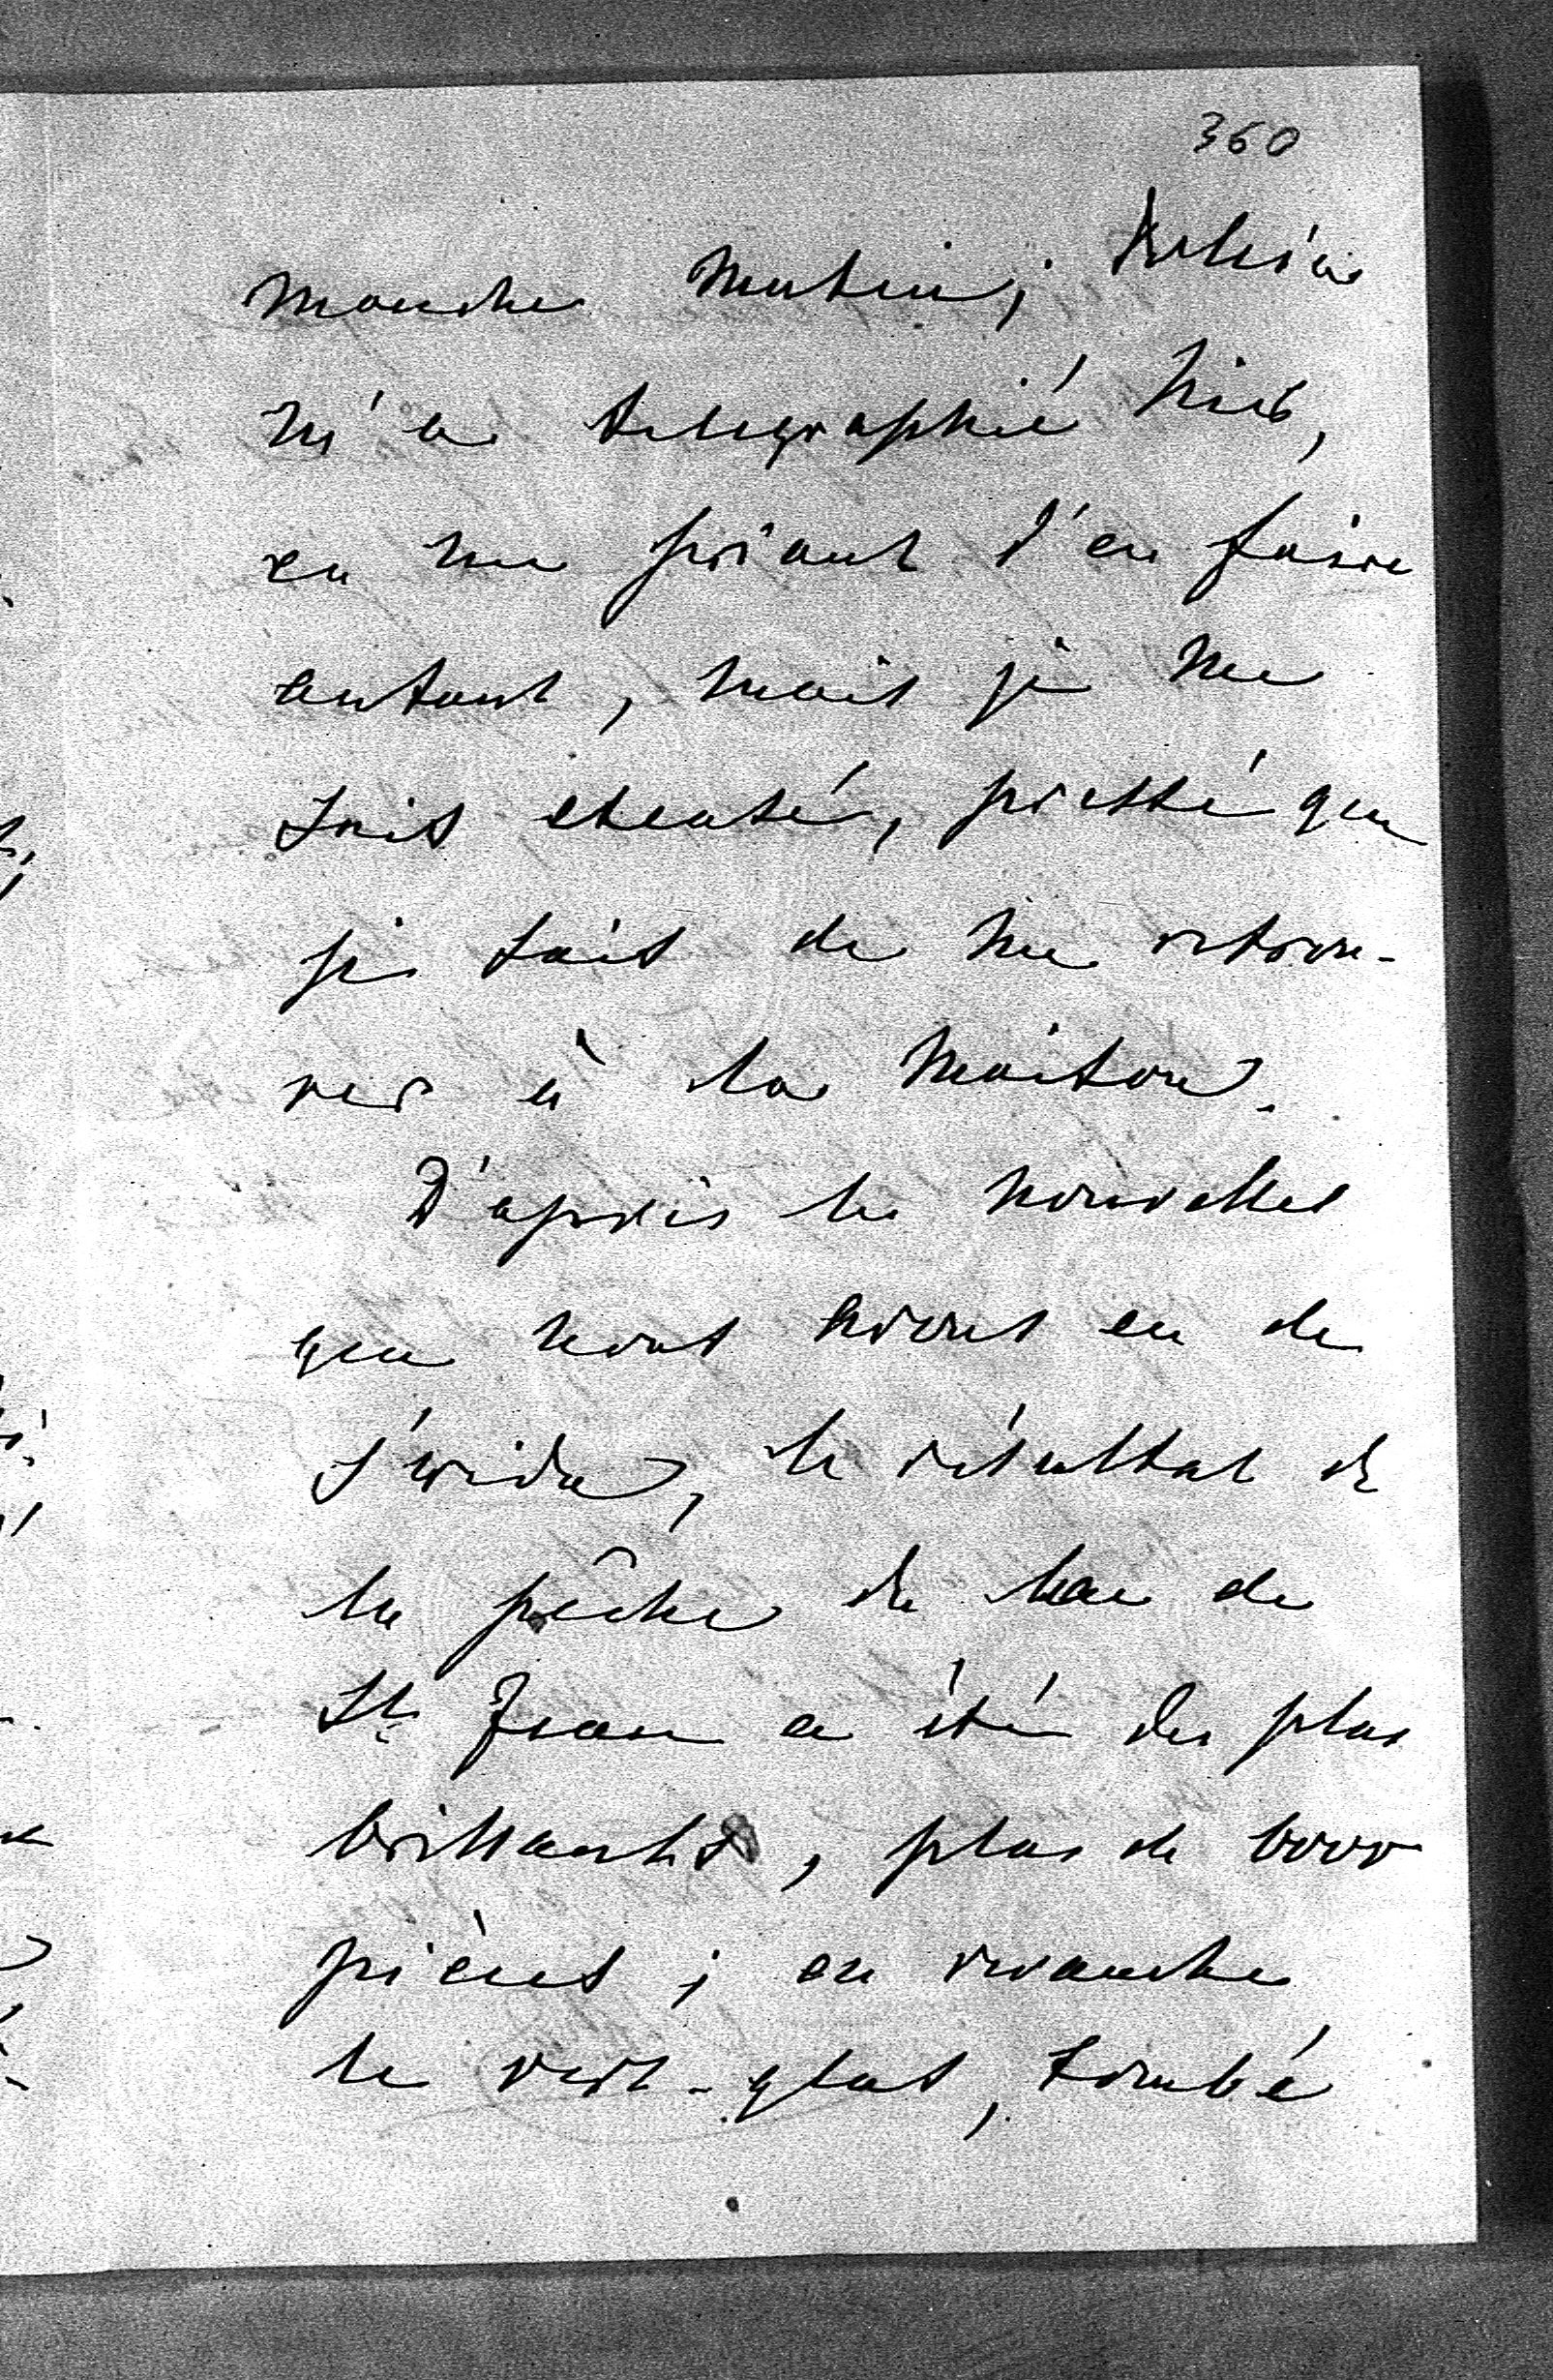 360
manche matin;
m'a telegraphié hier,
en me priant d'en faire
autant, mais je me
suis excusé, pressé que
je suis de me retrou-
ver à la maison.
D'après les nouvelles
que nous avons eu de
le résultat de
la pêche du lac de
St Jean a été des plus
brillants, plus de
pièces; en revanche
le vert-glas, tombé